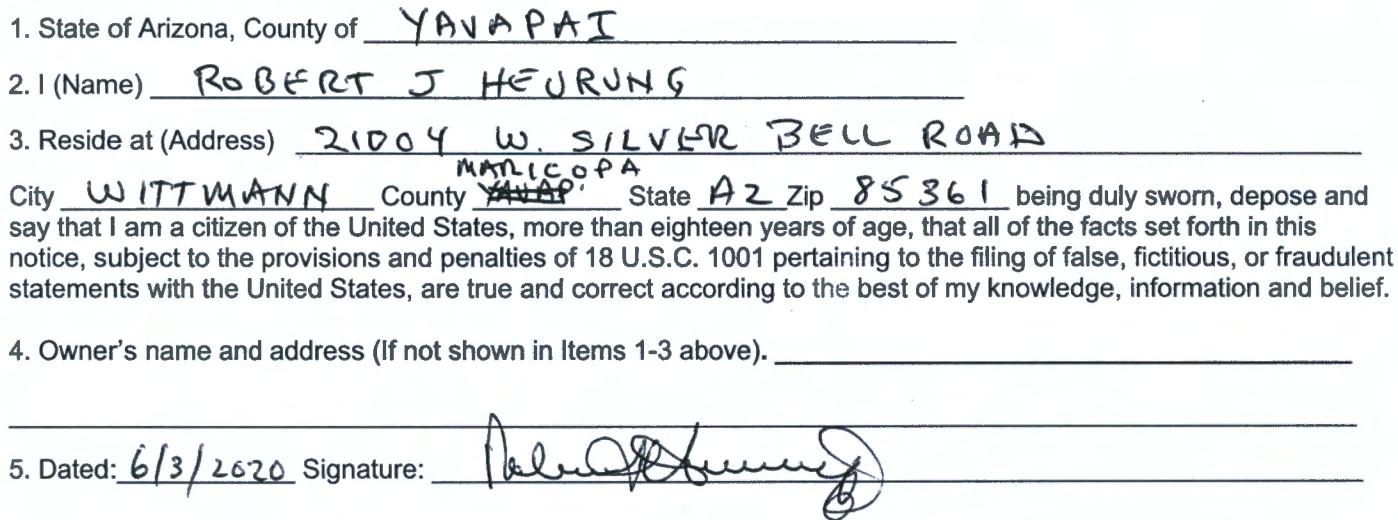 1. State of Arizona, County of YAVAPAI
2. I (Name) ROBERT J HEURUNG
3. Reside at (Address) 21004 W. SILVER BELL ROAD
MARICOPA
City WITTMANN County YAVAP State AZ Zip 85361 being duly sworn, depose and
say that I am a citizen of the United States, more than eighteen years of age, that all of the facts set forth in this
notice, subject to the provisions and penalties of 18 U.S.C. 1001 pertaining to the filing of false, fictitious, or fraudulent
statements with the United States, are true and correct according to the best of my knowledge, information and belief.
4. Owner's name and address (If not shown in Items 1-3 above).
5. Dated: 6/3/2020 Signature: